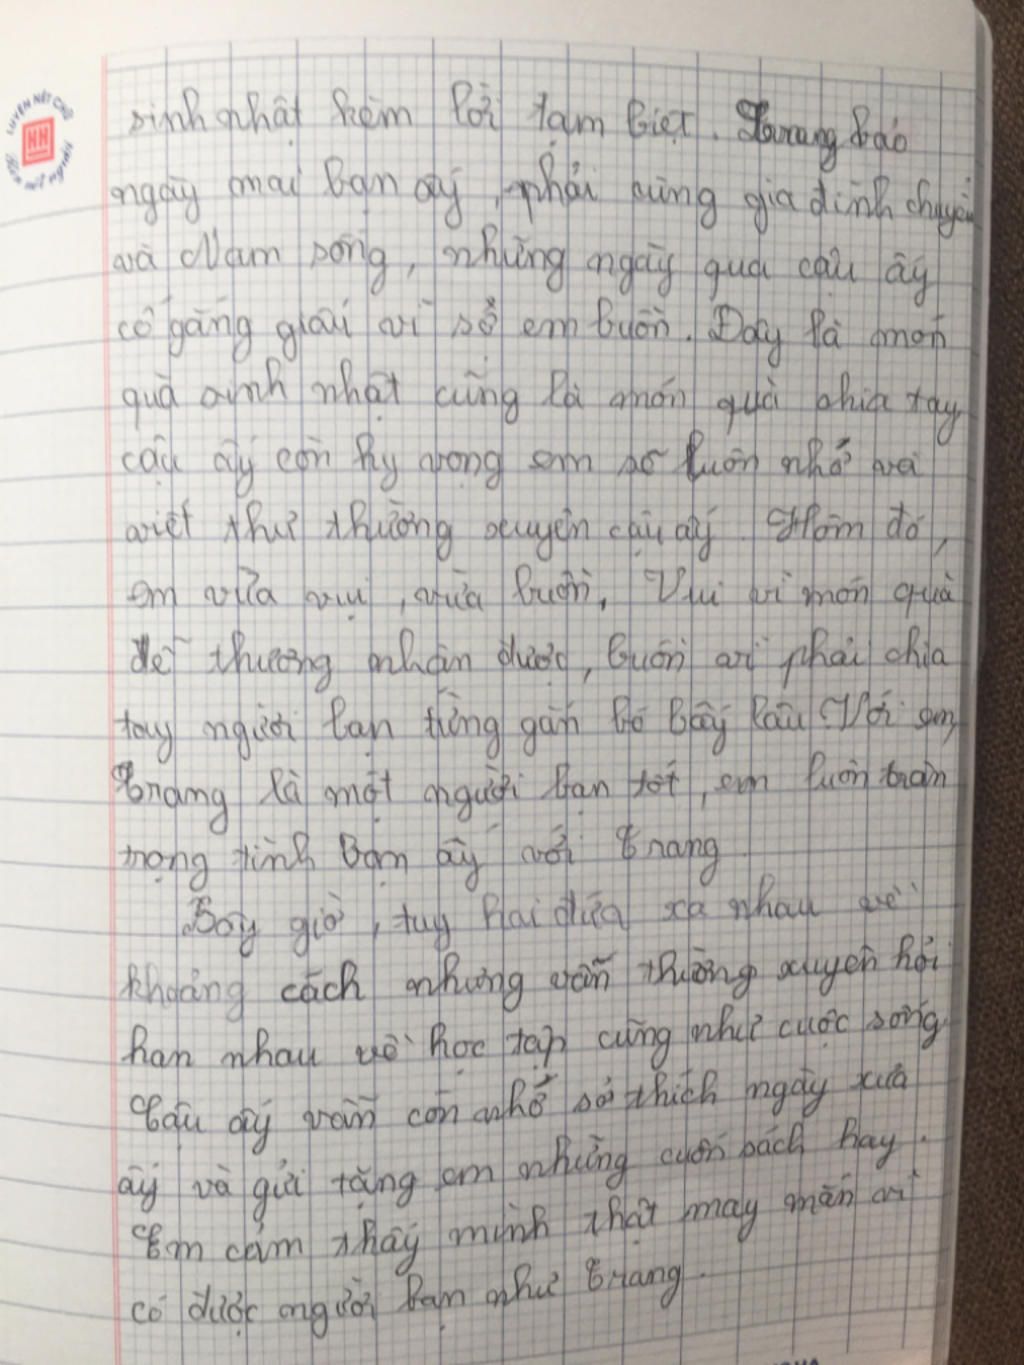 LUYỆN NÉT CHỮ
Rèn nết người
sinh nhật kèm lời tạm biệt. Trang bảo
ngày mai bạn ấy, phải cùng gia đình chuyển
và Nam sống, những ngày qua cậu ấy
cố gắng giấu vì sợ em buồn. Đây là món
quà sinh nhật cũng là món quà chia tay
cậu ấy còn hy vọng em sẽ luôn nhớ và
viết thư thường xuyên cậu ấy. Hôm đó,
em vừa vui, vừa buồn. Vui vì món quà
dễ thương nhận được, buồn vì phải chia
tay người bạn từng gắn bó bấy lâu. Với em,
Trang là một người bạn tốt, em luôn trân
trọng tình bạn ấy với Trang
Bây giờ, tuy hai đứa xa nhau về
khoảng cách nhưng vẫn thường xuyên hỏi
han nhau về học tập cũng như cuộc sống.
Cậu ấy vẫn còn nhớ sở thích ngày xưa
ấy và gửi tặng em những cuốn sách hay.
Em cảm thấy mình thật may mắn vì
có được người bạn như Trang.